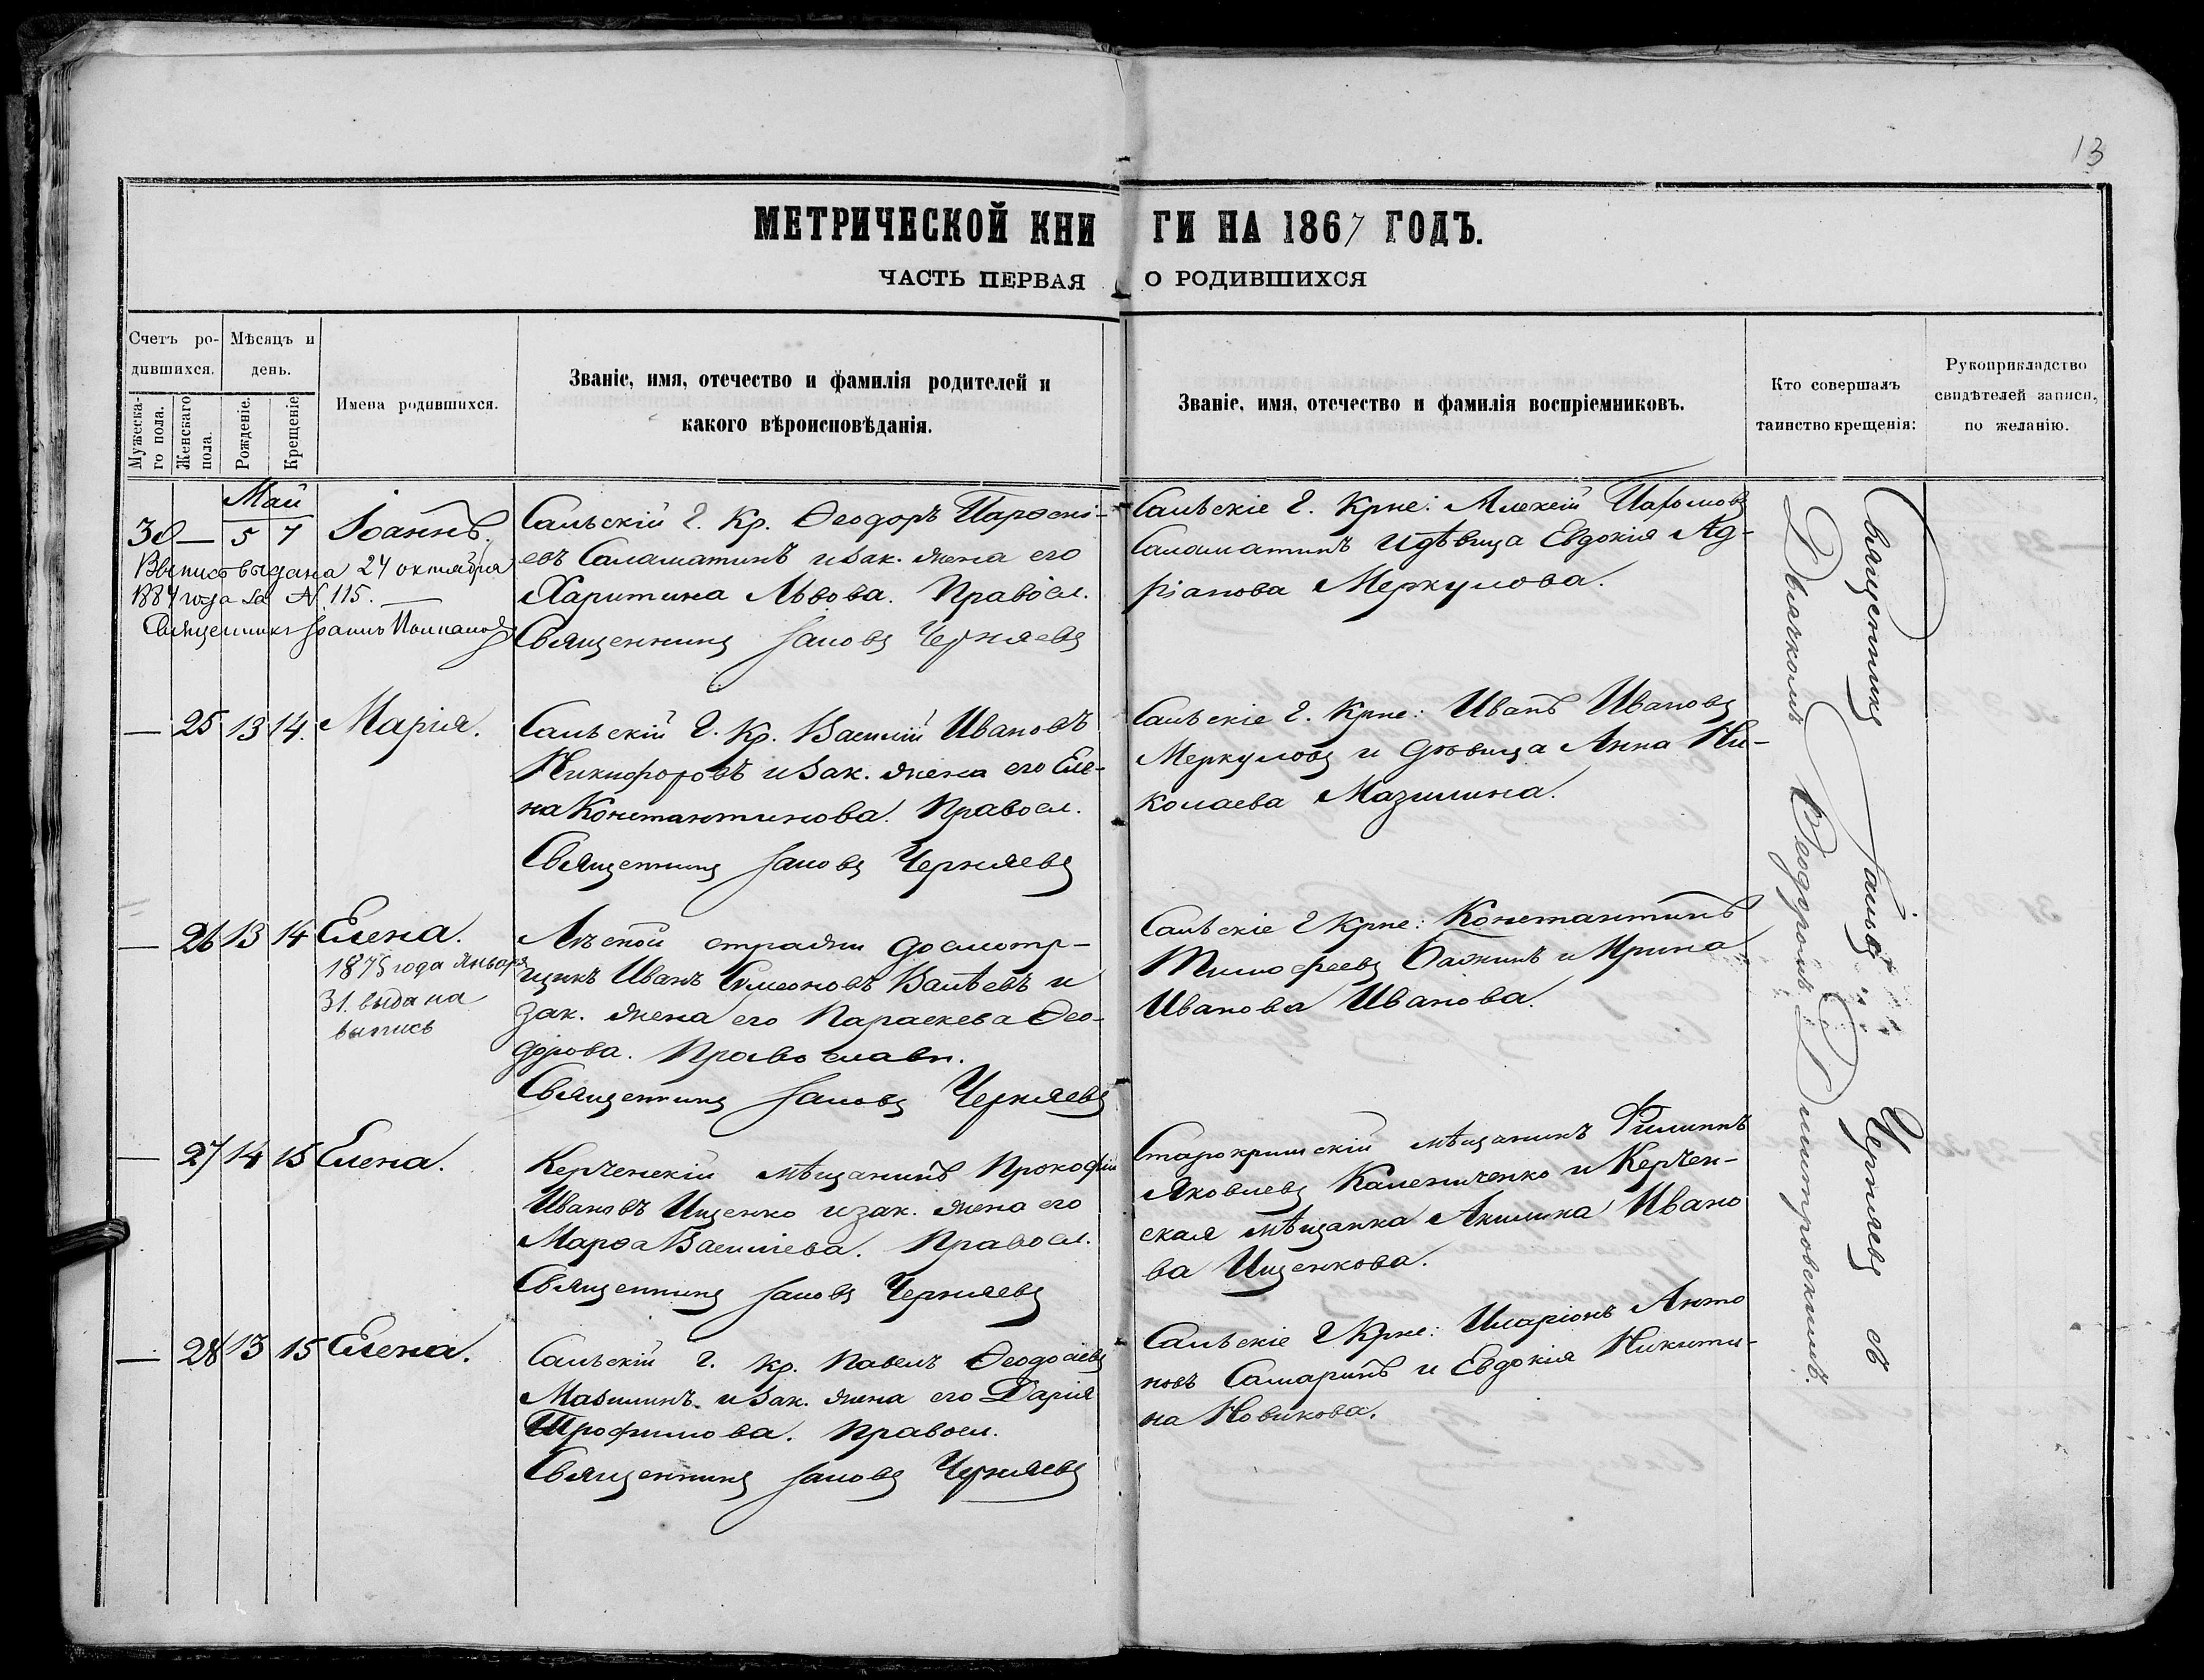 13
МЕТРИЧЕСКОЙ КНИГИ НА 1867 ГОДЪ.
ЧАСТЬ ПЕРВАЯ О РОДИВШИХСЯ
Счетъ ро-
дившихся.
Мужеска-
го пола.
Женскаго
пола.
Мѣсяцъ и
день.
Рожденіе.
Крещеніе
Имена родившихся.
Званіе, имя, отечество и фамилія родителей и
какого вѣроисповѣданія.
Званіе, имя, отечество и фамилія воспріемниковъ.
Кто совершалъ
таинство крещенія:
Рукоприкладство
свидѣтелей записи,
по желанію.
Май
30 — 5 7 Іоаннъ.
Выпись выдана 24 октября
1884 года за № 115.
Священникъ Іоаннъ
Сальскій Г. Кр. Ѳеодоръ Парѳені-
евъ Саламатинъ и зак. жена его
Харитина Львова. Правосл.
Священникъ Іаковъ Черняевъ
Сальскіе Г. Крне: Алексій
Саламатинъ и дѣвица Евдокія Ад-
ріанова Меркулова.
— 25 13 14. Марія.
Сальскій Г. Кр. Василій Ивановъ
Никифоровъ и зак. жена его Еле-
на Константинова. Правосл.
Священникъ Іаковъ Черняевъ
Сальскіе Г. Крне: Иванъ Ивановъ
Меркуловъ и дѣвица Анна Ни-
колаева Мазилина.
— 26 13 14 Елена.
1875 года Января
31. выдана
выпись
Лѣсной стражи досмотр-
щикъ Иванъ Симеоновъ Валѣевъ и
зак. жена его Параскева Ѳео-
дорова. Православн.
Священникъ Іаковъ Черняевъ
Сальскіе Г Крне: Константинъ
Тимофеевъ Бажинъ и Ирина
Иванова Иванова.
— 27 14 15 Елена.
Керченскій мѣщанинъ Прокофій
Ивановъ Ищенко и зак. жена его
Марѳа Васильева. Правосл.
Священникъ Іаковъ Черняевъ
Старокрымскій мѣщанинъ Филиппъ
Яковлевъ Калениченко и Керчен-
ская мѣщанка Акилина Ивано
ва Ищенкова.
— 28 13 15 Елена.
Сальскій Г. Кр. Павелъ Ѳеодосіевъ
Мазилинъ и зак. жена его Дарія
Трофимова. Правосл.
Священникъ Іаковъ Черняевъ
Сальскіе Г Крне: Иларіонъ Анто
новъ Самаринъ и Евдокія Никити-
на Новикова.
Священникъ Іаковъ Черняевъ съ
Дьячкомъ Ѳеодоромъ Димитровскимъ.